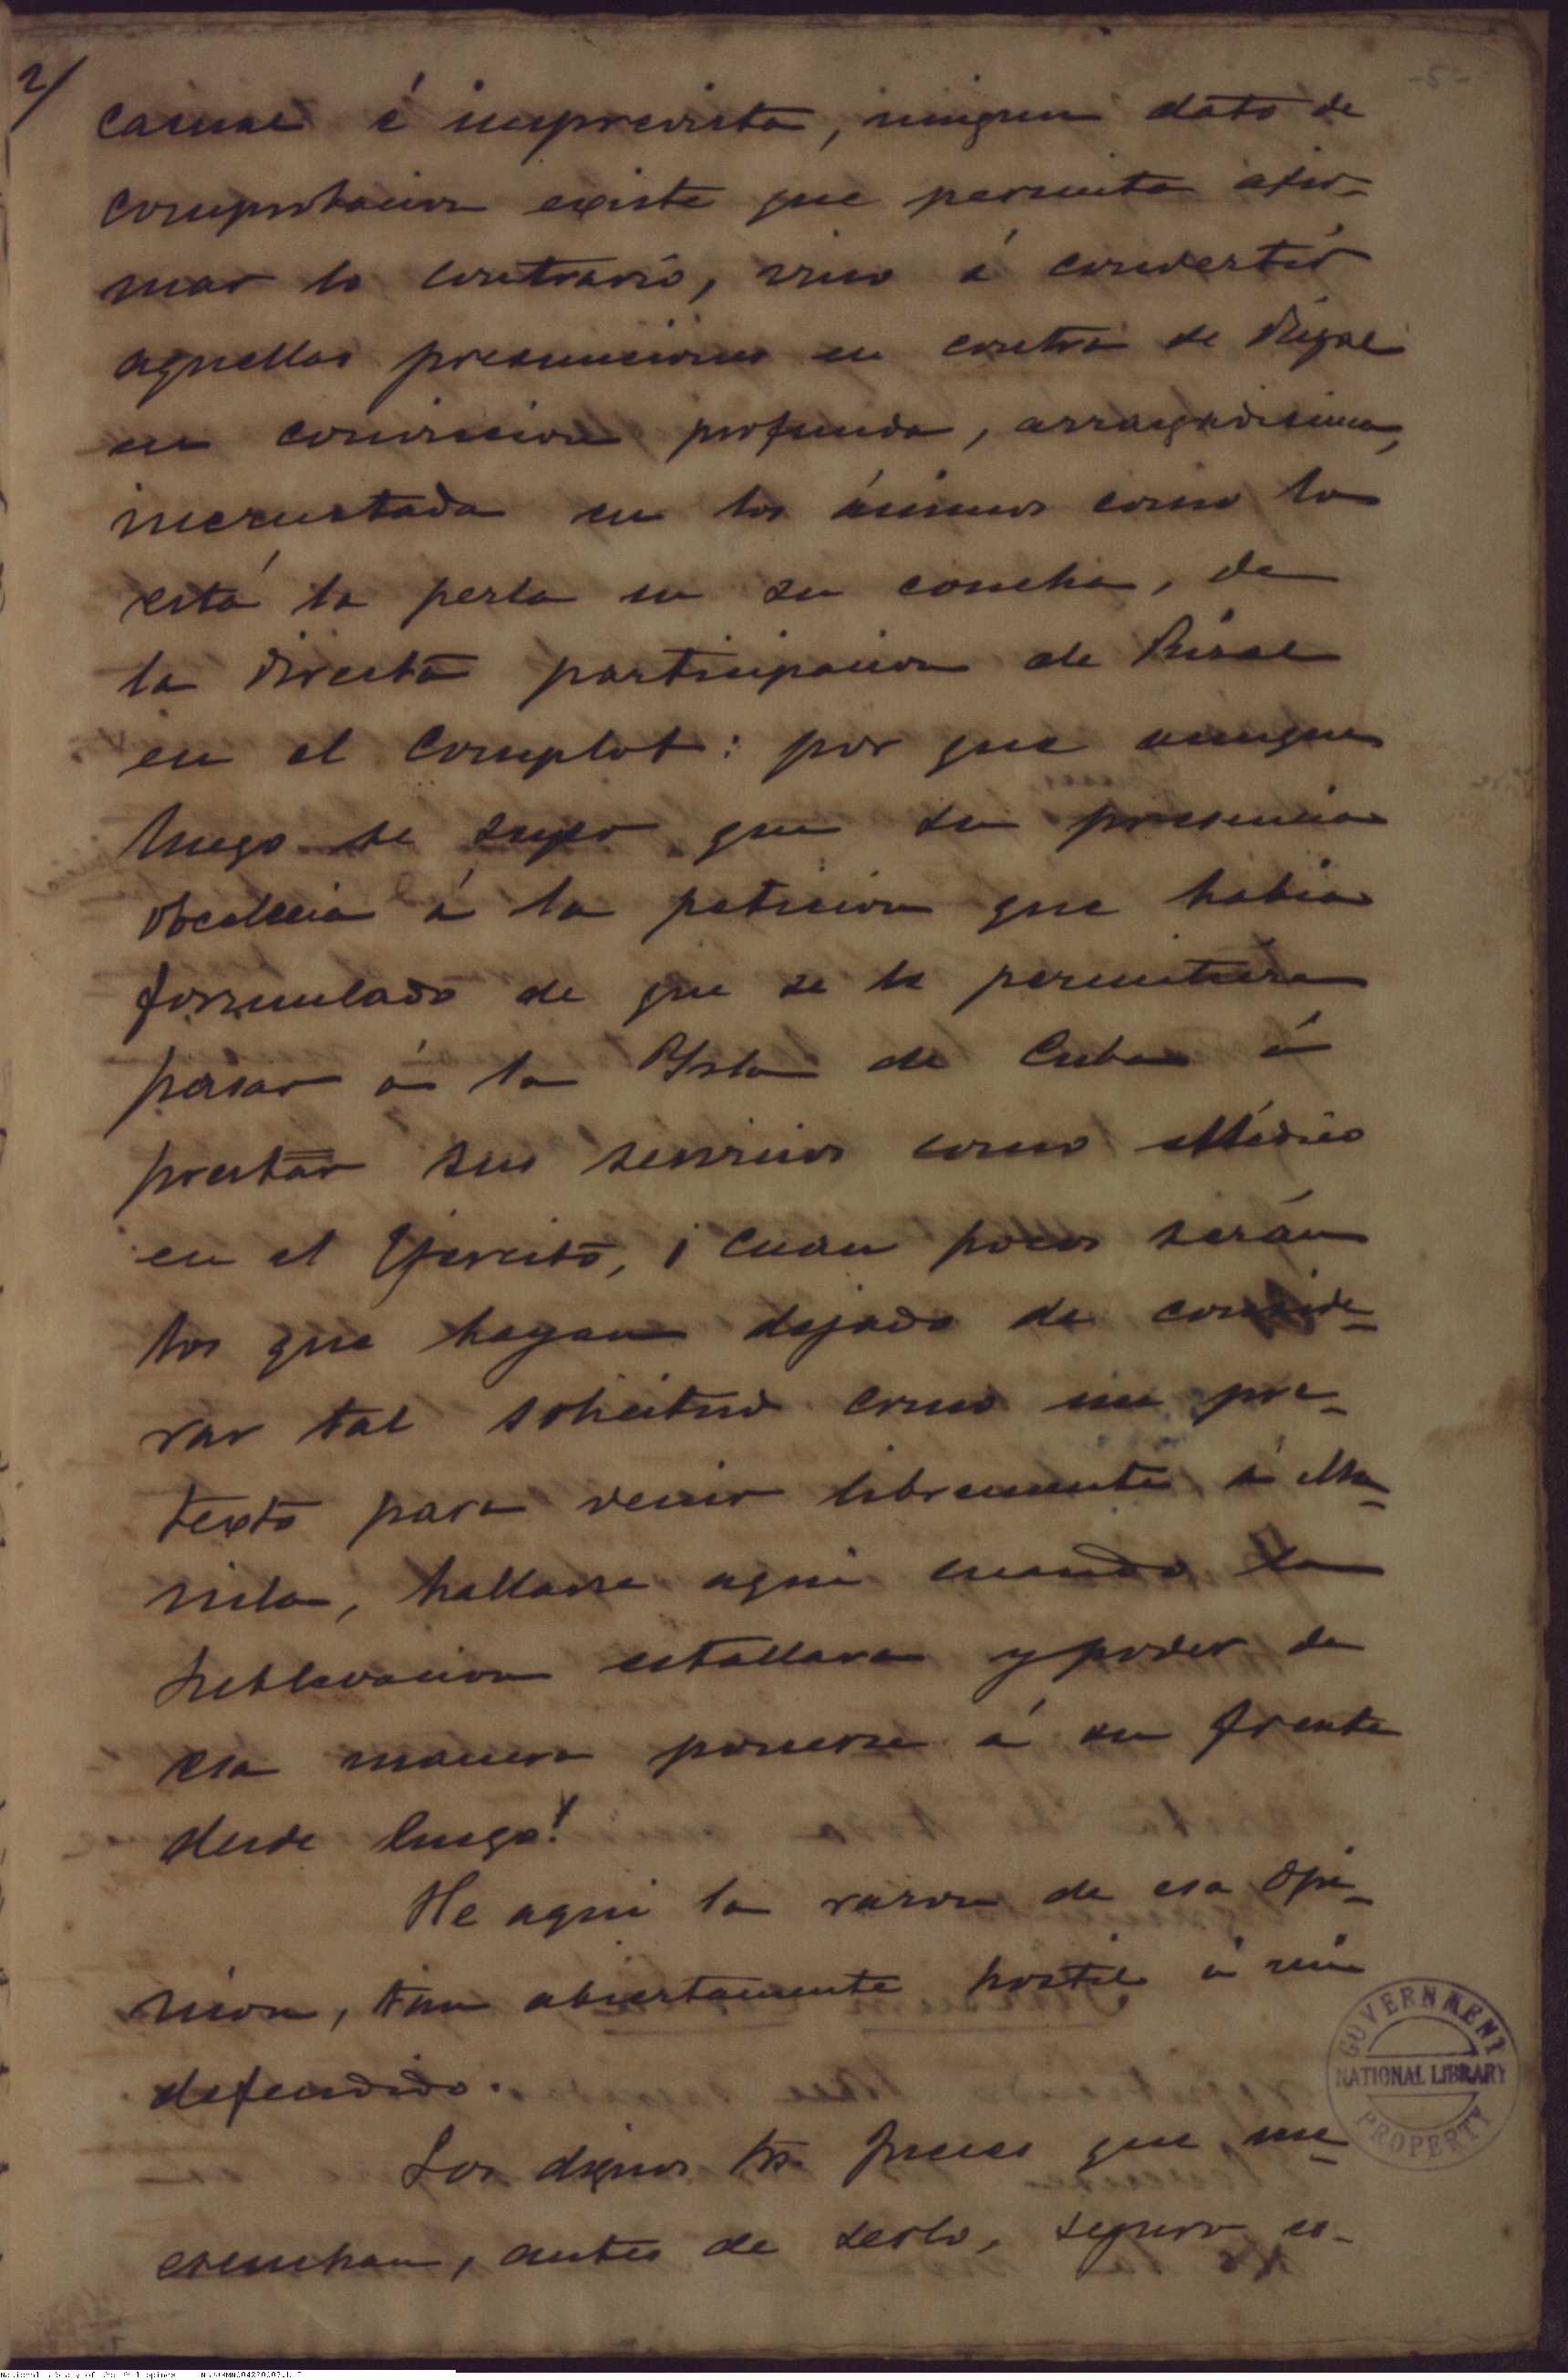 2/
-5-
casual é imprevista, ningun dato de
comprobacion existe que permita afir-
mar lo contrario, vino á convertir
aquellas presunciones en contra de Rizal
en conviccion profunda, arraigadisima,
incrustada en los ánimos como lo
está la perla en su concha, de
la directa participacion de Rizal
en el complot: por que aunque
luego se supo que su presencia
obedecia á la peticion que habia
formulado de que se le permitiera
pasar á la Ysla de Cuba á
prestar sus servicios como Médico
en el Ejercito, ¡cuan pocos serán
los que hayan dejado de conside-
rar tal solicitud como un pre-
texto para venir libremente á Ma-
nila, hallarse aqui cuando la
sublevacion estallara y poder de
esa manera ponerse á su frente
desde luego!
He aqui la razon de esa opi-
nion, tan abiertamente hostil á mi
defendido.
Los dignos Srs. Jueces que me
escuchan, antes de serlo, seguro es-
GOVERNMENT
NATIONAL LIBRARY
PROPERTY